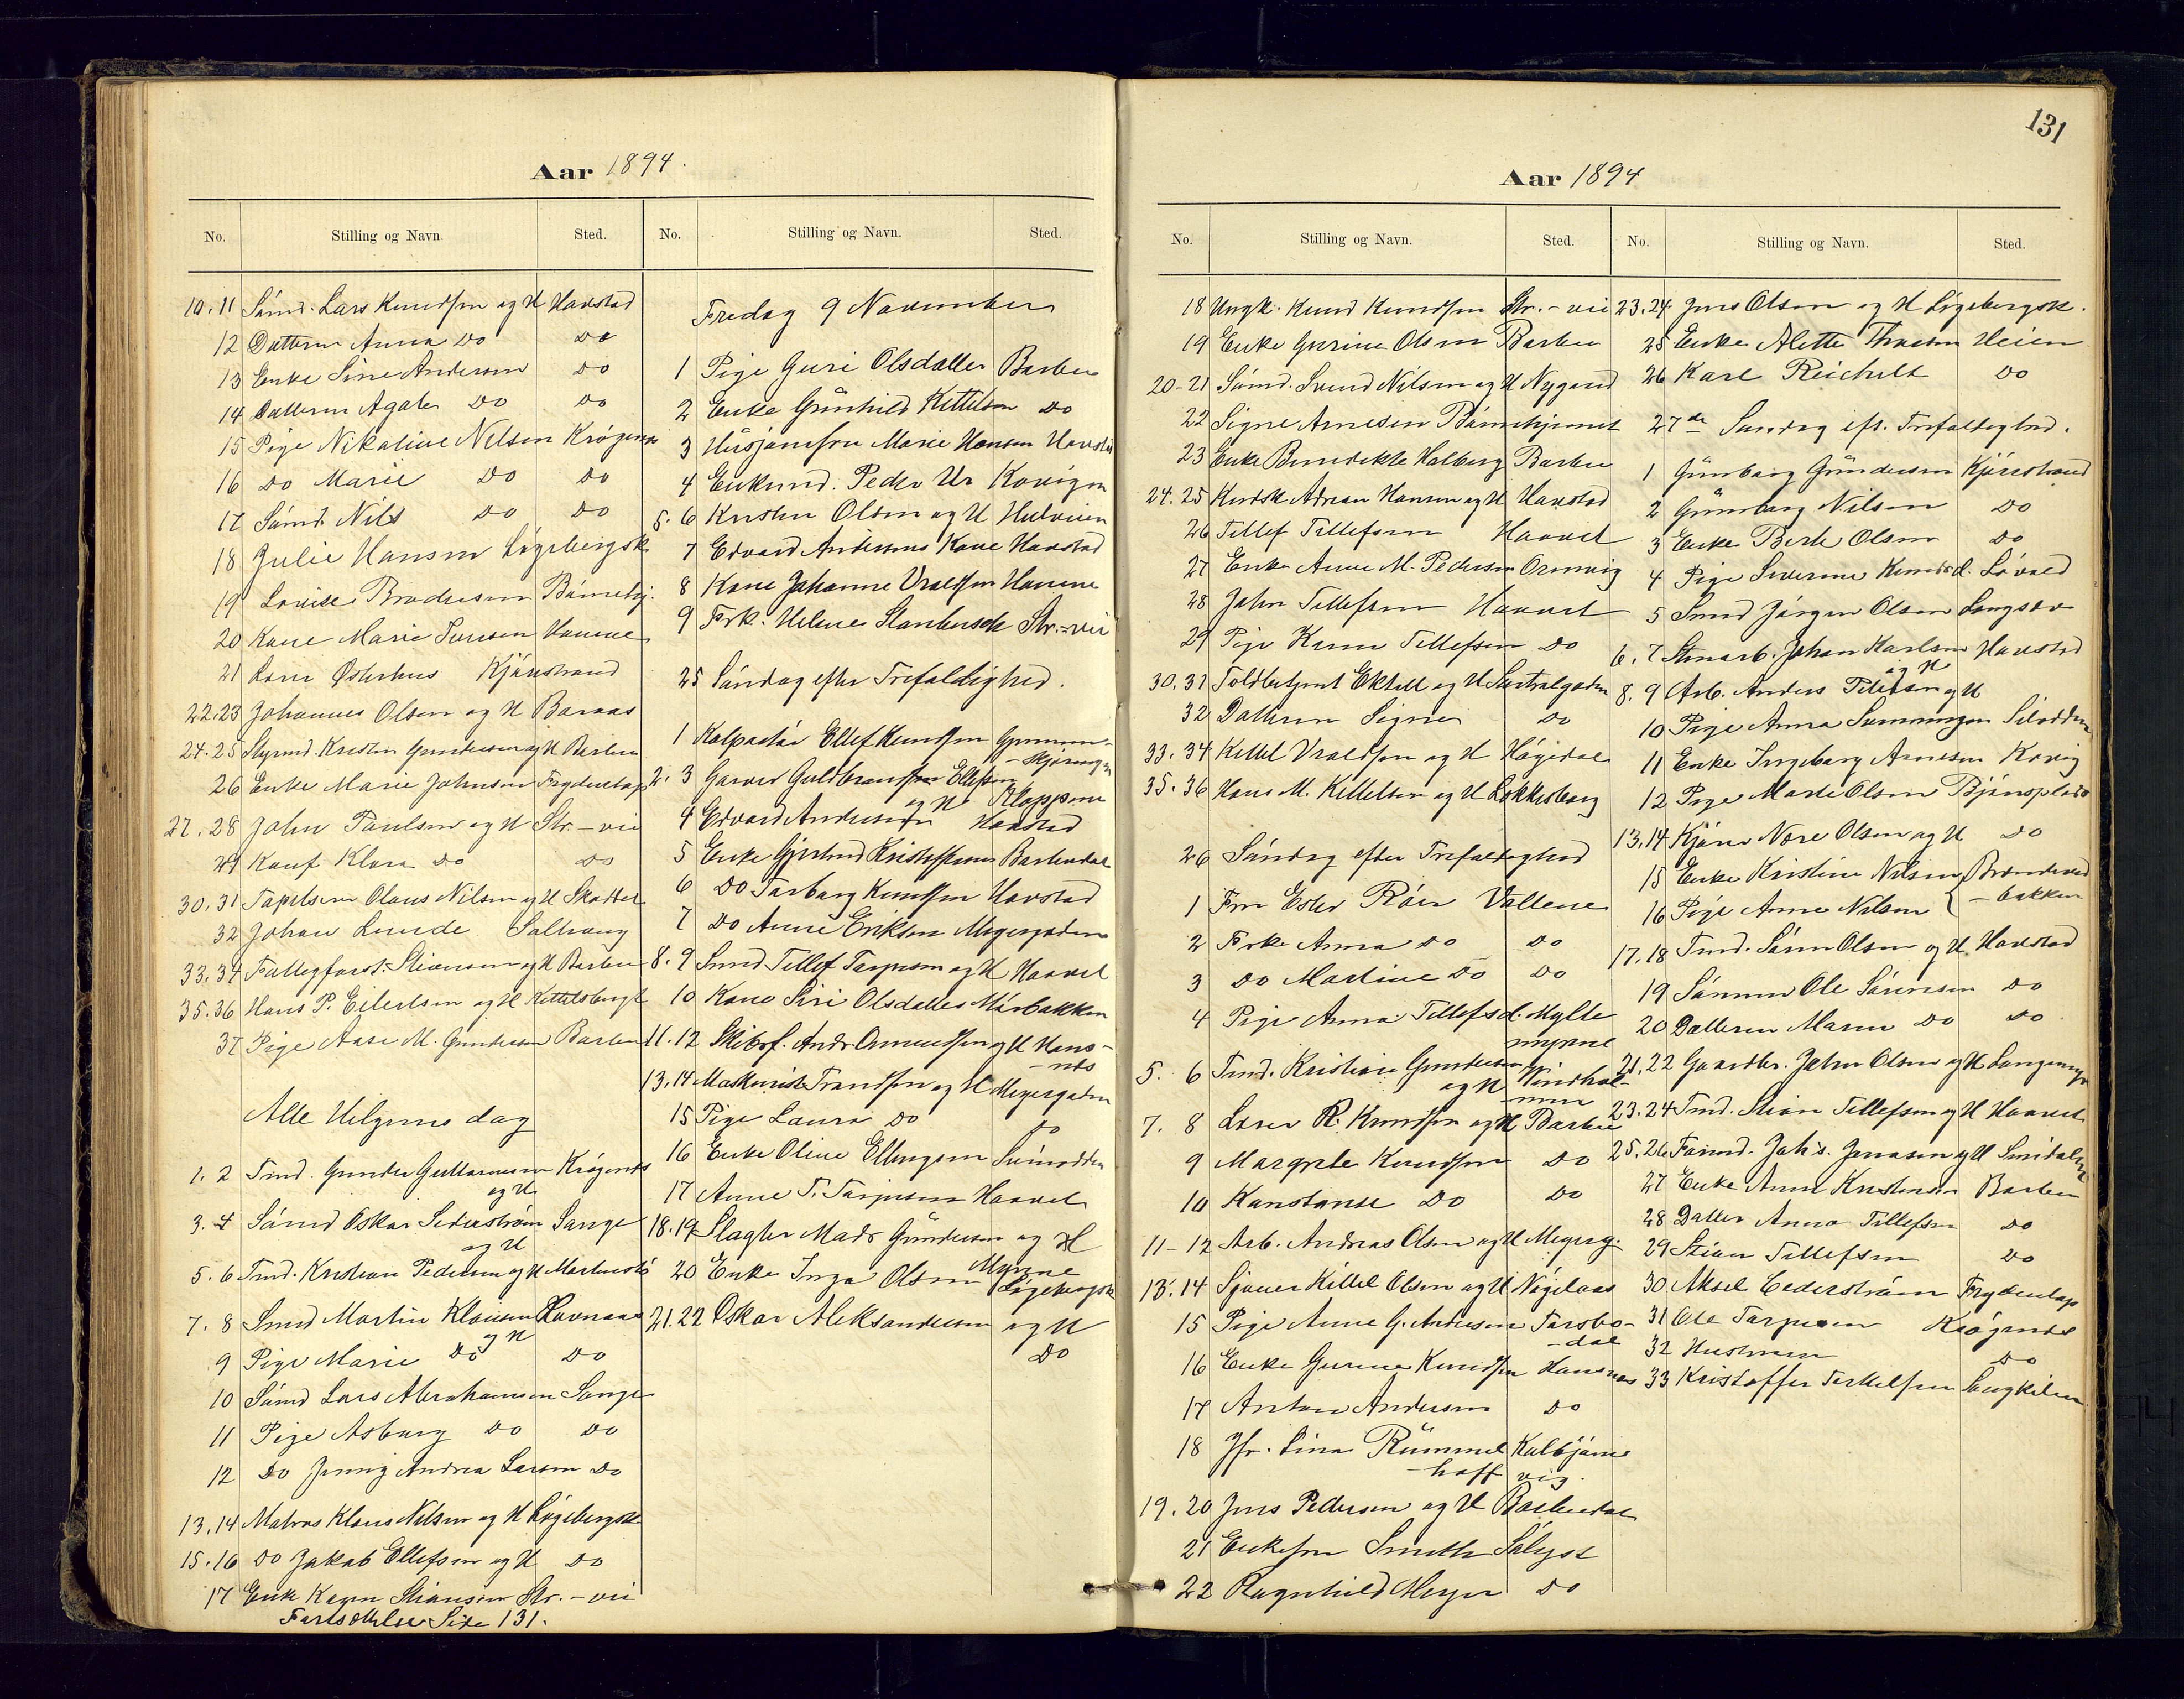 Aar 1894.
No. Stilling og Navn. Sted.
10.11 Sømd. Lars Knudsen og H Havstad
12 Datteren Anna Do Do
13 Enke Sine Andersen Do
14 Datteren Agate Do Do
15 Pige Nikoline Nilsen Krøgenes
16 Do Marie Do Do
17 Sømd. Nils Do Do
18 Julie Hansen Løgebergsk
19 Lovise Brodersen Børnehj.
20 Kone Marie Iversen Havene
21 Lovise Østerhus Kjønstrand
22.23 Johannes Olsen og H Baraas
24.25 Styrmd. Kristen Gundersen og H Barbu
26 Enke Marie Johnsen Frydenlop
27.28 John Paulsen og H Str. - vei
29 Konf Klara Do Do
30.31 Olaus Nilsen og H
32 Johan Lunde Solhaug
33.34 Stiansen og H Barbu
35.36 Hans P. Eilertsen og H Kittelsbugt
37 Pige Aase M. Gundersen Barbu
Alle Helgens dag
1.2 Tmd. Gunder Guttormsen og H Krøgenes
3.4 Sømd Oskar Sederstrøm og H Songe
5.6 Tmd. Kristian Pedersen og H
7.8 Smed Martin Klausen og H
9 Pige Marie Do Do
10 Sømd Lars Abrahamsen Songe
11 Pige Asborg Do Do
12 Do Jenny Andrea Larsen Do
13.14 Matros Klaus Nilsen og H Løgebergsk
15.16 Do Jakob Ellefsen og H Do
17 Enke Karen Stiansen Str. - vei
Fortsættelse Side 131.
No. Stilling og Navn. Sted.
Fredag 9 November
1 Pige Guri Olsdatter Barbu
2 Enke Gunhild Kittelsen Do
3 Husjomfru Marie Hansen Havstad
4 Enkemd. Peder Ur
5.6 Kristen Olsen og H
7 Edvard Andersens Kone Havstad
8 Kone Johanne Vraalsen Havene
9 Frk. Helene Str. - vei
25 Søndag efter Trefoldighed.
1 Kolportør Ellef Knudsen
2.3 Garver Guldbrandsen Ellefsen og H Kloppene
4 Edvard Andersen Havstad
5 Enke Gjertrud Kristoffersen Barbudal
6 Do Torborg Knudsen Havstad
7 Do Anne Eriksen Meyergaden
8.9 Smed Tellef Terjesen og H Haavet
10 Kone Siri Olsdatter Mørbakken
11.12 Skibsf. Andr Omundsen og H Hans - næs
13.14 Maskinist Trondsen og H Meyergaden
15 Pige Laura Do Do
16 Enke Oline Ellingsen
17 Anne T. Terjesen Haavet
18.19 Slagter Mads Gundersen og H Myrene
20 Enke Inga Olsen Løgebergsk
21.22 Oskar Aleksandersen og H Do
131
Aar 1894
No. Stilling og Navn. Sted.
18 Ungk. Knud Knudsen Str. - vei
19 Enke Gurine Olsen Barbu
20-21 Sømd. Svend Nilsen og H Nygaard
22 Signe Arnesen Børnehjemet
23 Enke Benedikte Holberg Barbu
24.25 Kudsk Adrian Hansen og H Havstad
26 Tellef Tellefsen Haavet
27 Enke Anne M. Pedersen Ormvig
28 John Tellefsen Haavet
29 Pige Karen Tellefsen Do
30.31 Toldbetjent Ektell og H Sentralgaden
32 Datteren Signe Do
33.34 Kittel Vraalsen og H Høgedal
35.36 Hans M. Kittelsen og H Løkkesborg
26 Søndag efter Trefoldighed
1 Fru Ester Röer Vollene
2 Frk. Anna Do Do
3 Do Martine Do Do
4 Pige Anna Tellefsd. Mylte myrene
5.6 Tmd. Kristian Gundersen og H Vindhol - men
7.8 Løser R. Knudsen og H Barbu
9 Margrete Knudsen Do
10 Konstanse Do Do
11-12 Arb. Andreas Olsen og H Meyerg.
13.14 Sjauer Kittel Olsen og H
15 Pige Anne G. Andersen Torsbo - dal
16 Enke Gurine Knudsen Hansnæs
17 Anton Andersen Do
18 Jfr. Lina Rummelhoff Kolbjørnsvig.
19.20 Jens Pedersen og H Barbudal
21 Enkefru Smith Sølyst
22 Ragnhild Meyer Do
No. Stilling og Navn. Sted.
23.24 Jens Olsen og H Løgebergsk.
25 Enke Alette Thomsen Heien
26 Karl Reichelt Do
27de Søndag eft. Trefoldighed.
1 Gunborg Gundersen Kjønstrand
2 Gunborg Nilsen Do
3 Enke Berte Olsen Do
4 Pige Severine Knudsd. Løvold
5 Smed Jørgen Olsen Langsæv
6.7 Stenarb. Johan Karlsen og H Havstad
8.9 Arb. Anders Pedersen og H
10 Pige Anna Sunningen
11 Enke Ingeborg Arnesen
12 Pige Marte Olsen
13.14 Kjøre Nore Olsen og H Do
15 Enke Kristine Nilsen Brændeved
16 Pige Anne Nilsen - bakken
17.18 Tmd. Søren Olsen og H Havstad
19 Sønnen Ole Sørensen Do
20 Datteren Maren Do Do
21.22 Gaardbr. John Olsen og H Langemyr
23.24 Tmd. Stian Tellefsen og H Haavet
25.26 Formd. Johs. Jonasen og H
27 Enke Anne Kristensen Barbu
28 Datter Anna Tellefsen Do
29 Stian Tellefsen Do
30 Aksel Cederstrøm Frydenlop
31 Ole Terjesen Krøgenes
32 Hustruen Do
33 Kristoffer Terkelsen Longkilen